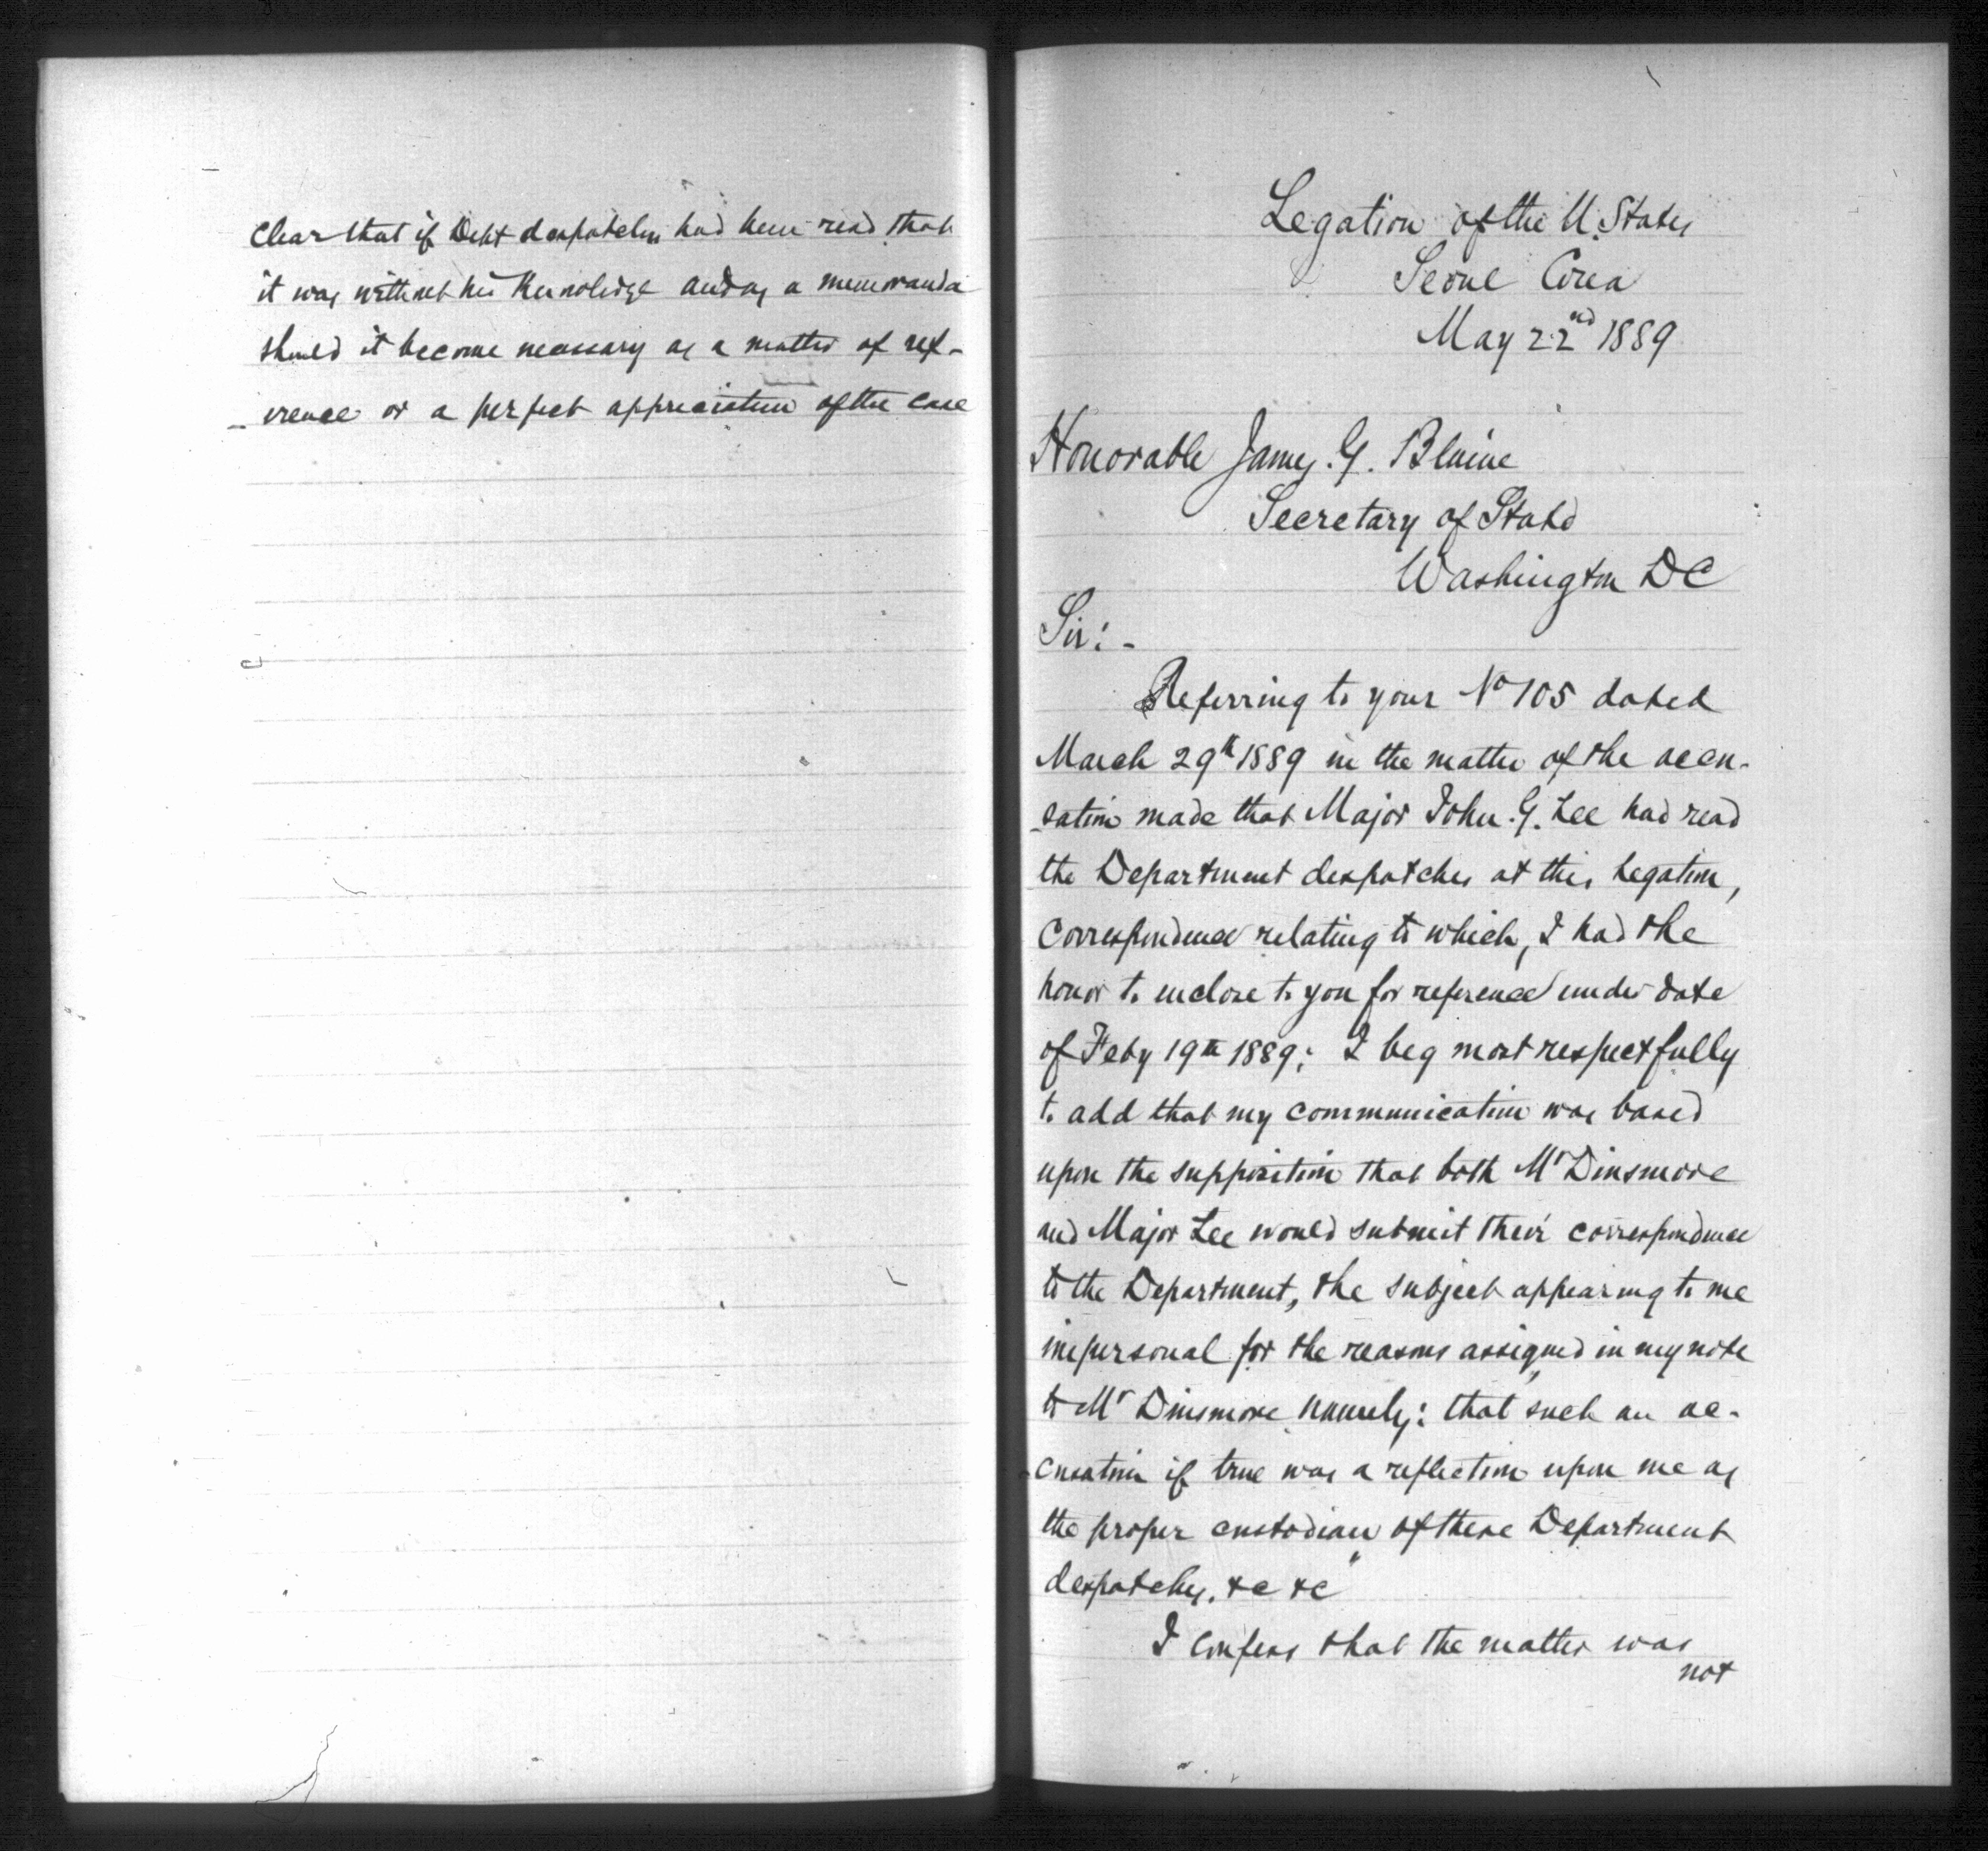 clear that if Dept despatches had been read that
it was without his Knowledge and as a memoranda
should it become necessary as a matter of ref-
-erence or a perfect appreciation of the case
Legation of the U. States
Seoul Corea
May 22nd 1889
Honorable James. G. Blaine
Secretary of State
Washington DC
Sir: -
Referring to your No 105 dated
March 29th 1889 in the matter of the accu-
-sation made that Major John. G. Lee had read
the Department despatches at this Legation,
correspondence relating to which, I had the
honor to enclose to you for reference under date
of Feby 19th 1889; I beg most respectfully
to add that my communication was based
upon the supposition that both Mr Dinsmore
and Major Lee would submit their correspondence
to the Department, the subject appearing to me
impersonal for the reasons assigned in my note
to Mr Dinsmore namely: that "such an ac-
-cusation if true was a reflection upon me as
the proper custodian of these Department
despatches. &c &c"
I confess that the matter was
not